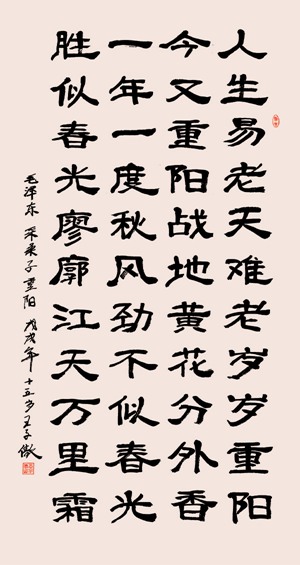 人生易老天难老岁岁重阳
今又重阳战地黄花分外香
一年一度秋风劲不似春光
胜似春光廖廓江天万里霜
毛泽东 采桑子重阳 戊戌年 十五岁王子傲